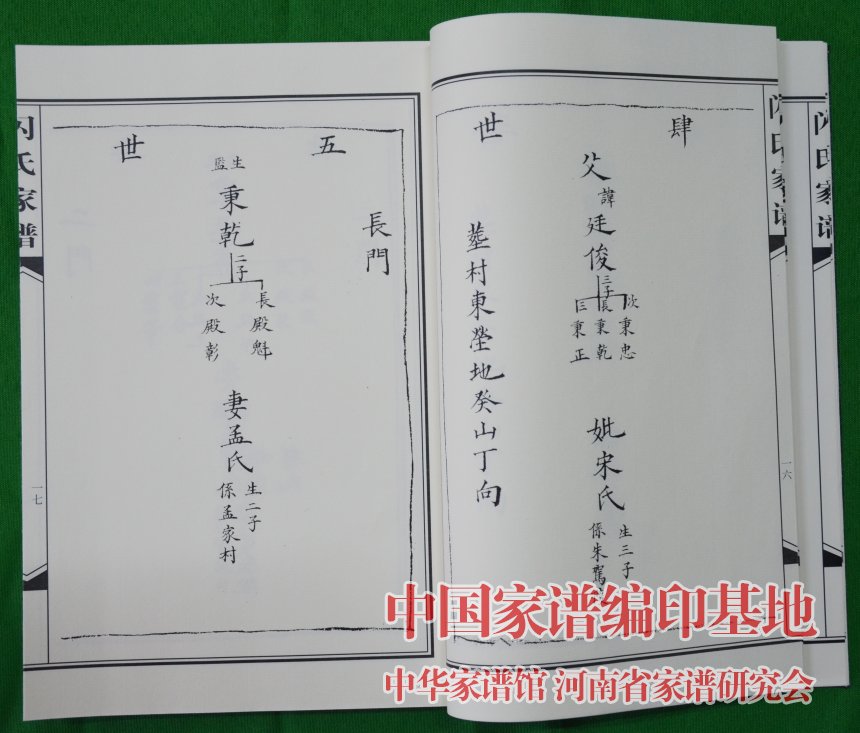 闪氏家谱
闪氏家谱
一六
肆世
父諱廷俊
三子
次秉忠
長秉乾
三秉正
妣宋氏
生三子
係朱駕
塟村東塋地癸山丁向
五世
長門
生監
秉乾
二子
長殿魁
次殿彰
妻孟氏
生二子
係孟家村
闪氏家谱
一七
中国家谱编印基地
中华家谱馆 河南省家谱研究会